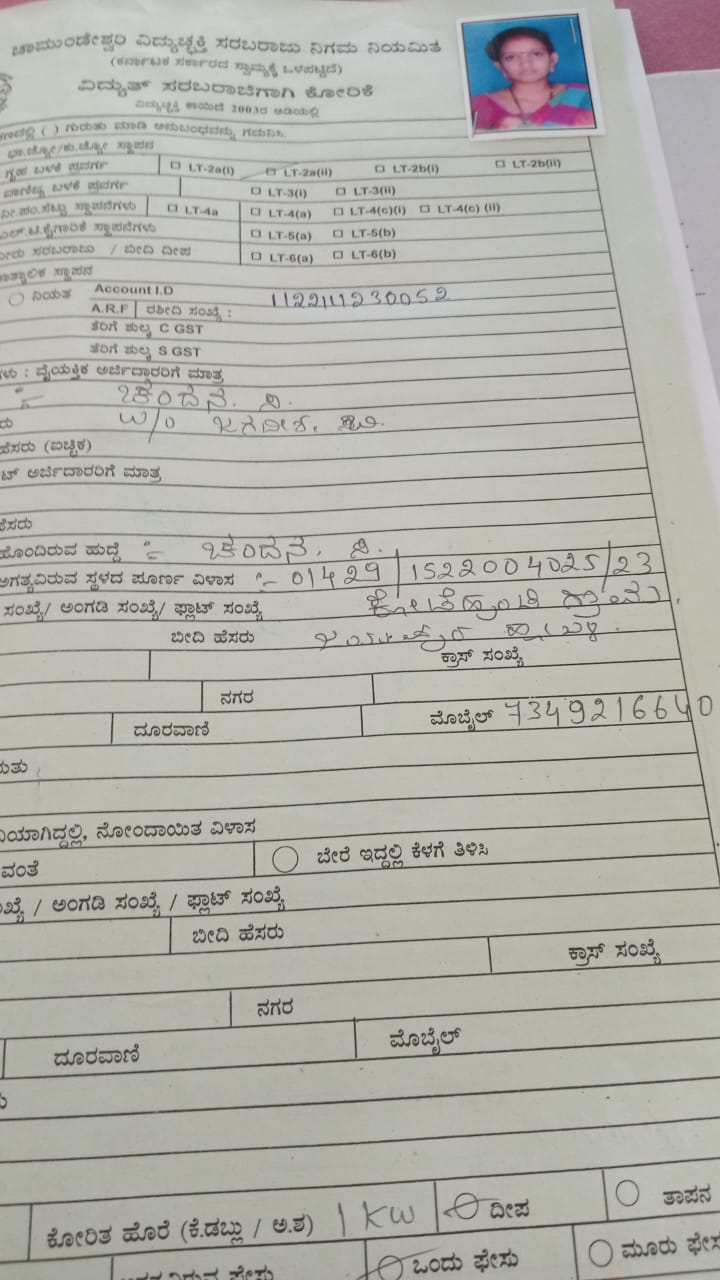 ಚಾಮುಂಡೇಶ್ವರಿ ವಿದ್ಯುಚ್ಛಕ್ತಿ ಸರಬರಾಜು ನಿಗಮ ನಿಯಮಿತ
(ಕರ್ನಾಟಕ ಸರ್ಕಾರದ ಸ್ವಾಮ್ಯಕ್ಕೆ ಒಳಪಟ್ಟಿದೆ)
ವಿದ್ಯುತ್ ಸರಬರಾಜಿಗಾಗಿ ಕೋರಿಕೆ
ವಿದ್ಯುಚ್ಛಕ್ತಿ ಕಾಯಿದೆ 2003ರ ಅಡಿಯಲ್ಲಿ
( ) ಗುರುತು ಮಾಡಿ ಅನುಬಂಧವನ್ನು ಗಮನಿಸಿ.
ಸ್ಥಾಪನ
ಗೃಹ ಬಳಕೆ ಪ್ರವರ್ಗ LT-2a(i) LT-2a(ii) LT-2b(i) LT-2b(ii)
ವಾಣಿಜ್ಯ ಬಳಕೆ ಪ್ರವರ್ಗ LT-3(i) LT-3(ii)
ನೀ.ಪಂ.ಸೆಟ್ಟು ಸ್ಥಾಪನೆಗಳು LT-4a LT-4(a) LT-4(c)(i) LT-4(c) (ii)
ಎಲ್.ಟಿ.ಕೈಗಾರಿಕೆ ಸ್ಥಾಪನೆಗಳು LT-5(a) LT-5(b)
ನೀರು ಸರಬರಾಜು / ಬೀದಿ ದೀಪ LT-6(a) LT-6(b)
ತಾತ್ಕಾಲಿಕ ಸ್ಥಾಪನ
ನಿಯತ Account I.D 1122111230052
A.R.F ರಶೀದಿ ಸಂಖ್ಯೆ :
ತೆರಿಗೆ ಶುಲ್ಕ C GST
ತೆರಿಗೆ ಶುಲ್ಕ S GST
ಗಳು : ವೈಯಕ್ತಿಕ ಅರ್ಜಿದಾರರಿಗೆ ಮಾತ್ರ
:- ಚಂದನ. ವಿ.
ರು W/o ಜಗದೀಶ.
ಹೆಸರು (ಐಚ್ಛಿಕ)
ಟ್ ಅರ್ಜಿದಾರರಿಗೆ ಮಾತ್ರ
ಹೆಸರು
ಹೊಂದಿರುವ ಹುದ್ದೆ :- ಚಂದನ. ವಿ.
ಅಗತ್ಯವಿರುವ ಸ್ಥಳದ ಪೂರ್ಣ ವಿಳಾಸ :- 01429/1522004025/23
ಸಂಖ್ಯೆ/ ಅಂಗಡಿ ಸಂಖ್ಯೆ/ ಫ್ಲಾಟ್ ಸಂಖ್ಯೆ ಕೋಟೆಹುಂಡಿ ಗ್ರಾಮ,
ಬೀದಿ ಹೆಸರು ಜಯಪುರ ಹೋಬಳಿ.
ಕ್ರಾಸ್ ಸಂಖ್ಯೆ
ನಗರ
ದೂರವಾಣಿ ಮೊಬೈಲ್ 7349216640
ಯಾಗಿದ್ದಲ್ಲಿ, ನೋಂದಾಯಿತ ವಿಳಾಸ
ವಂತೆ ಬೇರೆ ಇದ್ದಲ್ಲಿ ಕೆಳಗೆ ತಿಳಿಸಿ
ಖ್ಯೆ / ಅಂಗಡಿ ಸಂಖ್ಯೆ / ಫ್ಲಾಟ್ ಸಂಖ್ಯೆ
ಬೀದಿ ಹೆಸರು
ಕ್ರಾಸ್ ಸಂಖ್ಯೆ
ನಗರ
ದೂರವಾಣಿ ಮೊಬೈಲ್
ಕೋರಿತ ಹೊರೆ (ಕೆ.ಡಬ್ಲು / ಅ.ಶ) 1 KW ದೀಪ ತಾಪನ
ಒಂದು ಫೇಸು ಮೂರು ಫೇಸು